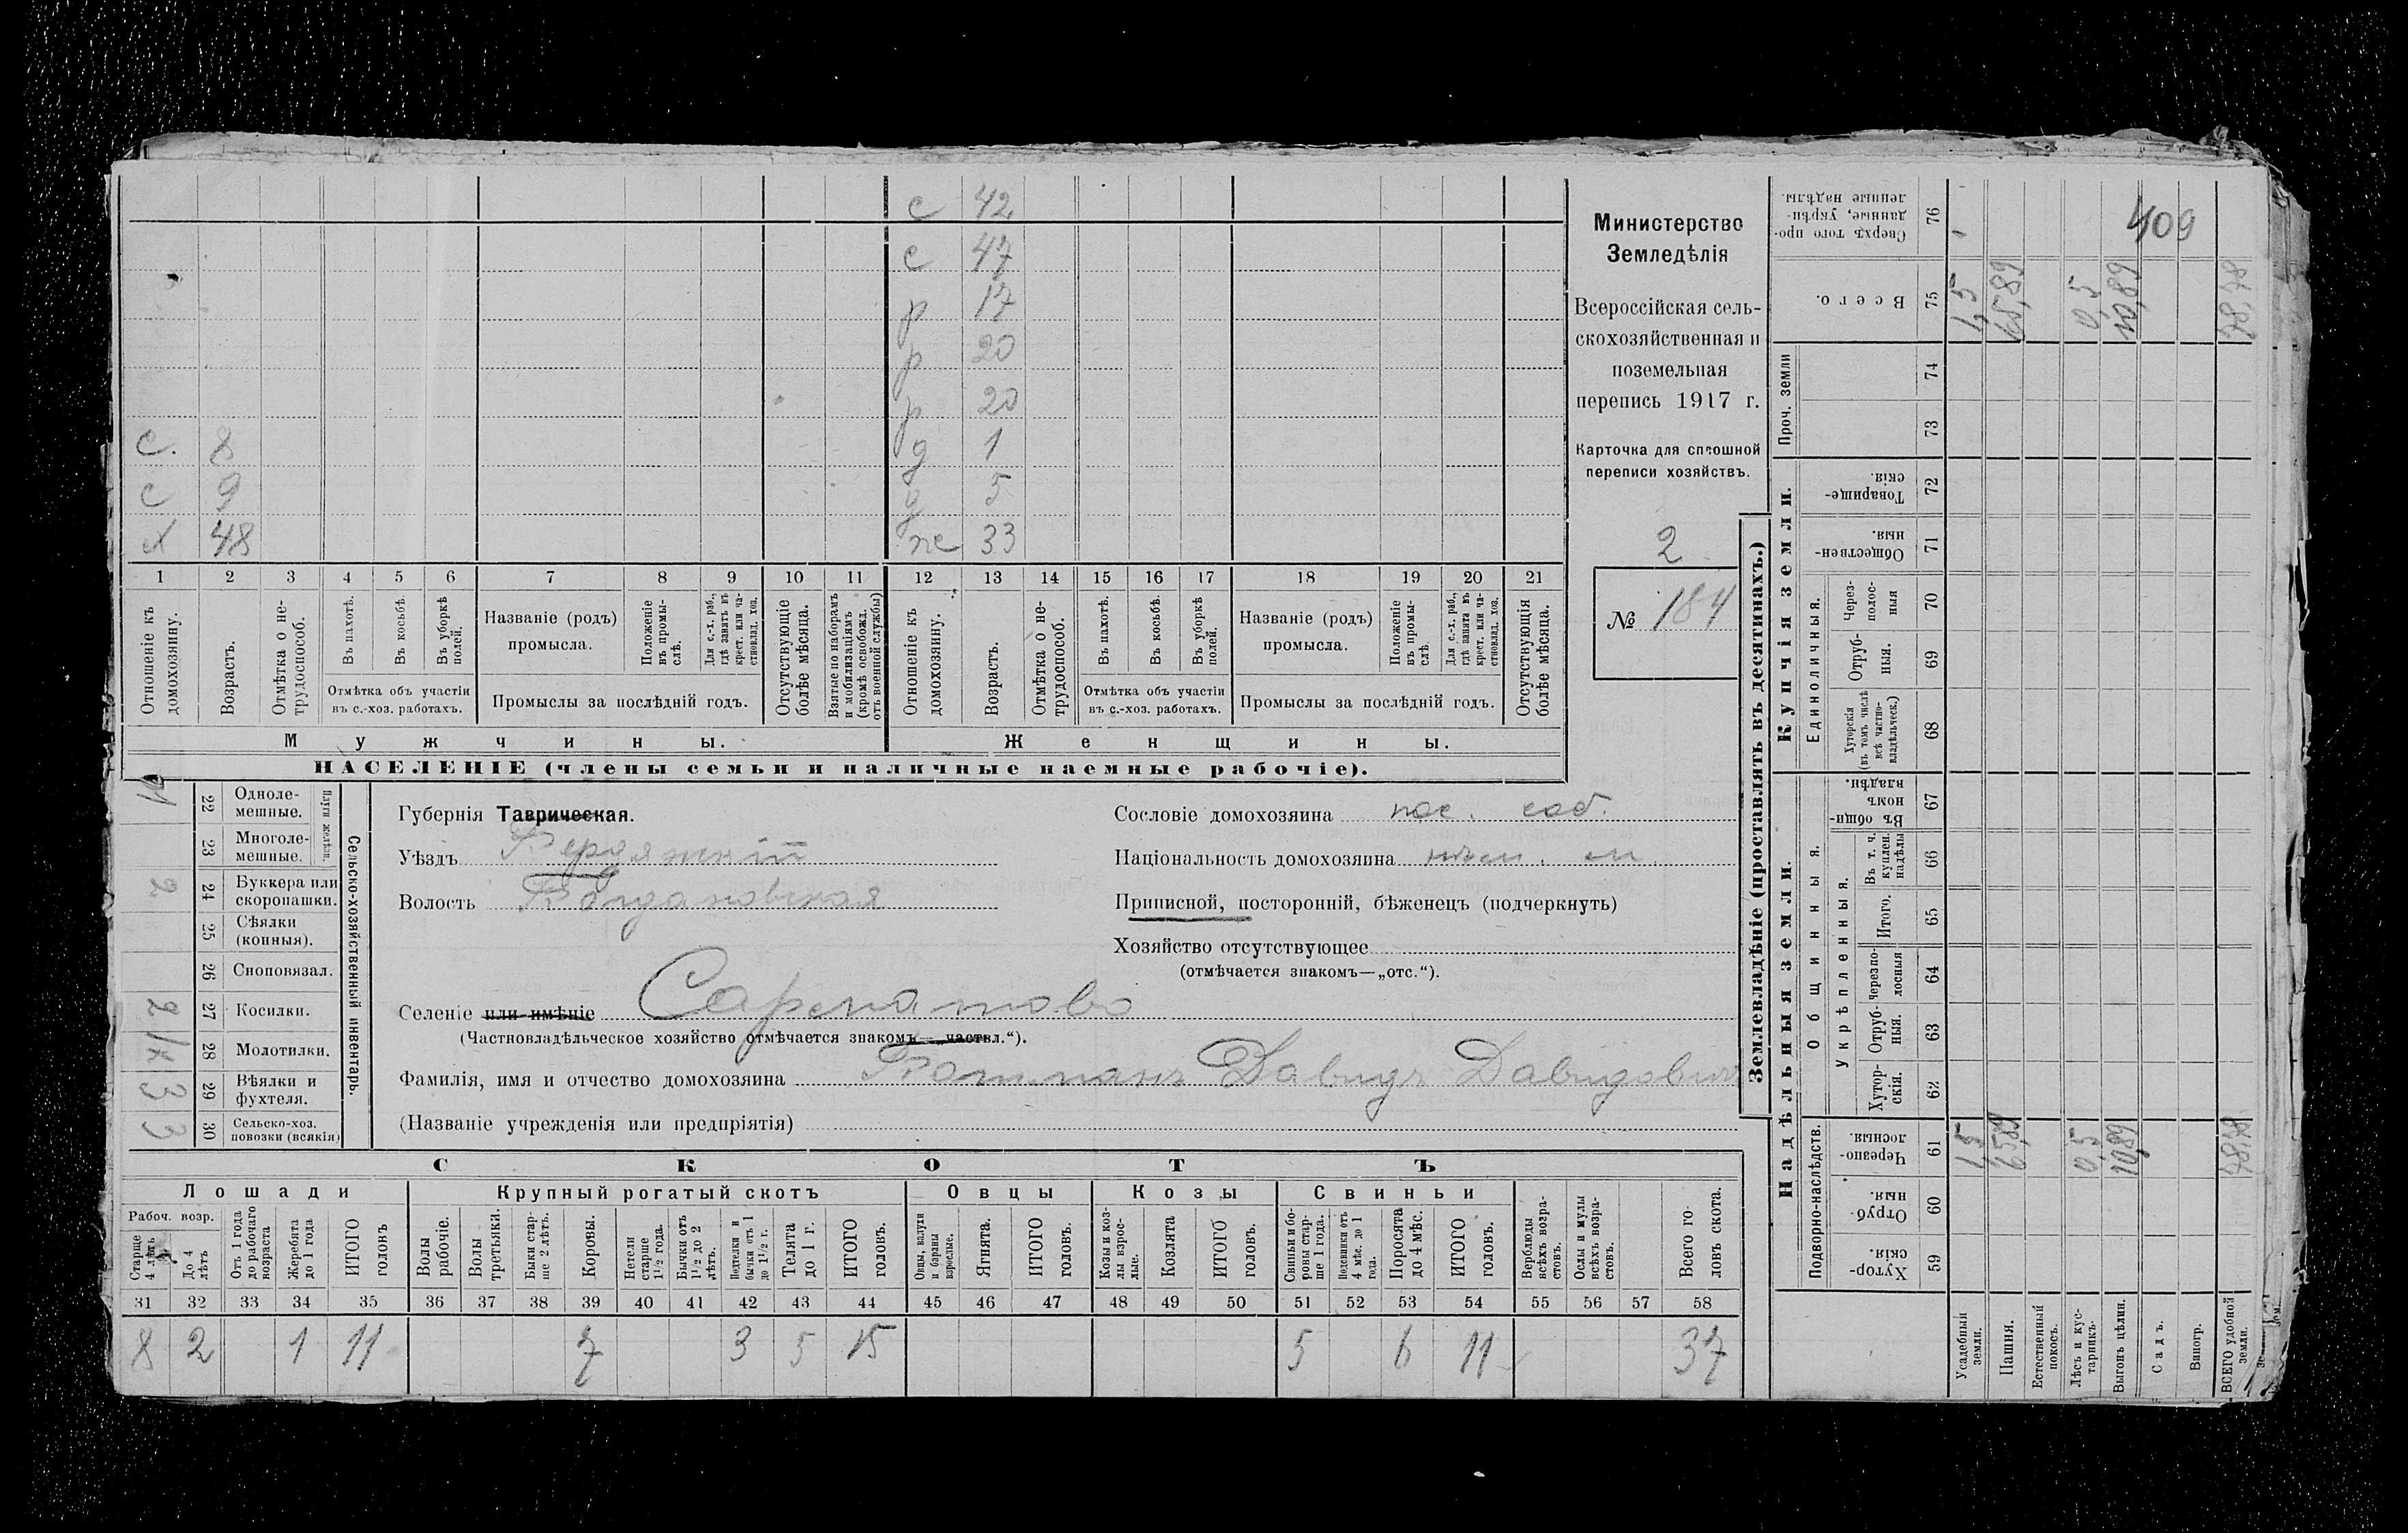 с 42
с 47
р 17
р 20
р 20
с. 8 д 1
с 9 д 5
х 48 ж 33
1 2 3 4 5 6 7 8 9 10 11 12 13 14 15 16 17 18 19 20 21
Отношеніе къ домохозяину.
Возрастъ.
Отмѣтка о не-трудоспособ.
Въ пахотѣ.
Въ косьбѣ.
Въ уборкѣ полей.
Отмѣтка объ участіи
въ с.-хоз. работахъ.
Названіе (родъ)
промысла.
Положеніе въ промы-слѣ.
Для с.-х. раб., гдѣ занятъ въ крест. или ча-стновлад. хоз.
Промыслы за послѣдній годъ.
Отсутствующіе болѣе мѣсяца.
Взятые по наборамъ и мобилизаціямъ (кромѣ освобожд. отъ военной службы)
Отношеніе къ домохозяину.
Возрастъ.
Отмѣтка о не-трудоспособ.
Въ пахотѣ.
Въ косьбѣ.
Въ уборкѣ полей.
Отмѣтка объ участіи
въ с.-хоз. работахъ.
Названіе (родъ)
промысла.
Положеніе въ промы-слѣ.
Для с.-х. раб., гдѣ занята въ крест. или ча-стновлад. хоз.
Промыслы за послѣдній годъ.
Отсутствующія болѣе мѣсяца.
Мужчины. Женщины.
НАСЕЛЕНІЕ (члены семьи и наличные наемные рабочіе).
Министерство
Земледѣлія
Всероссійская сель-
скохозяйственная и
поземельная
перепись 1917 г.
Карточка для сплошной
переписи хозяйствъ.
2
№ 184
Сельско-хозяйственный инвентарь.
Плуги желѣзн.
22 Одноле-мешные.
23 Многоле-мешные.
2 24 Буккера или скоропашки.
25 Сѣялки (конныя).
26 Сноповязал.
2 27 Косилки.
28 Молотилки.
3 29 Вѣялки и фухтеля.
3 30 Сельско-хоз. повозки (всякія)
Губернія Таврическая.
Уѣздъ Бердянскій
Волость Богдановская
Селеніе или имѣніе
(Частновладѣльческое хозяйство отмѣчается знакомъ—„частвл.“).
Фамилія, имя и отчество домохозяина Давидъ Давидович
(Названіе учрежденія или предпріятія)
Сословіе домохозяина пос. соб.
Національность домохозяина нѣм.
Приписной, посторонній, бѣженецъ (подчеркнуть)
Хозяйство отсутствующее
(отмѣчается знакомъ—„отс.“).
СКОТЪ
Лошади
Рабоч. возр.
Старше 4 лѣтъ
До 4 лѣтъ
Отъ 1 года до рабочаго возраста
Жеребята до 1 года
ИТОГО головъ
Крупный рогатый скотъ
Волы рабочіе.
Волы третьяки.
Быки стар-ше 2 лѣтъ.
Коровы.
Нетели старше 1 1/2 года.
Бычки отъ 1 1/2 до 2 лѣтъ.
Подтелки и бычки отъ 1 до 1 1/2 г.
Телята до 1 г.
ИТОГО головъ.
Овцы
Овцы, валухи и бараны взрослые.
Ягнята.
ИТОГО головъ.
Козы
Козы и коз-лы взрос-лые.
Козлята
ИТОГО головъ.
Свиньи
Свиньи и бо-ровы стар-ше 1 года.
Подсвинки отъ 4 мѣс. до 1 года.
Поросята до 4 мѣс.
ИТОГО головъ.
Верблюды всѣхъ возра-стовъ.
Ослы и мулы всѣхъ возра-стовъ.
Всего го-ловъ скота.
31 32 33 34 35 36 37 38 39 40 41 42 43 44 45 46 47 48 49 50 51 52 53 54 55 56 57 58
8 2 1 11 7 3 5 15 5 6 11 37
Землевладѣніе (проставлять въ десятинахъ.)
Надѣльныя земли.
Купчія земли.
Подворно-наслѣдств.
Общинныя.
Укрѣпленныя.
Единоличныя.
Проч. земли
Сверхъ того про-данные, укрѣп-ленные надѣлы. 76
Всего. 75
74
73
Товарище-скія. 72
Обществен-ныя. 71
Через-полос-ныя 70
Отруб-ныя. 69
Хуторскія (въ томъ числѣ всѣ частно-владѣльческ.) 68
Въ общи-номъ владѣн. 67
Въ т. ч. куплен. надѣлы 66
Итого. 65
Черезпо-лосныя 64
Отруб-ныя. 63
Хутор-скія. 62
Черезпо-лосныя. 61
Отруб-ныя. 60
Хутор-скія. 59
Усадебный земли. 1,5 1,5
Пашня. 65,89 65,89
Естественный покосъ.
Лѣсъ и кус-тарникъ. 0,5 0,5
Выгонъ цѣлин. 10,89 10,89
Садъ.
Виногр.
ВСЕГО удобной земли. 78,78 78,78
409